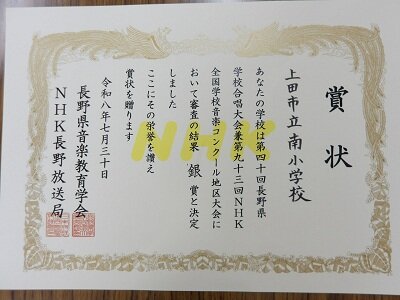 賞状
上田市立南小学校
あなたの学校は第四十回長野県
学校合唱大会兼第九十三回NHK
全国学校音楽コンクール地区大会に
おいて審査の結果 銀 賞と決定
しました
ここにその栄誉を讃え
賞状を贈ります
令和八年七月三十日
長野県音楽教育学会
NHK長野放送局
NHK